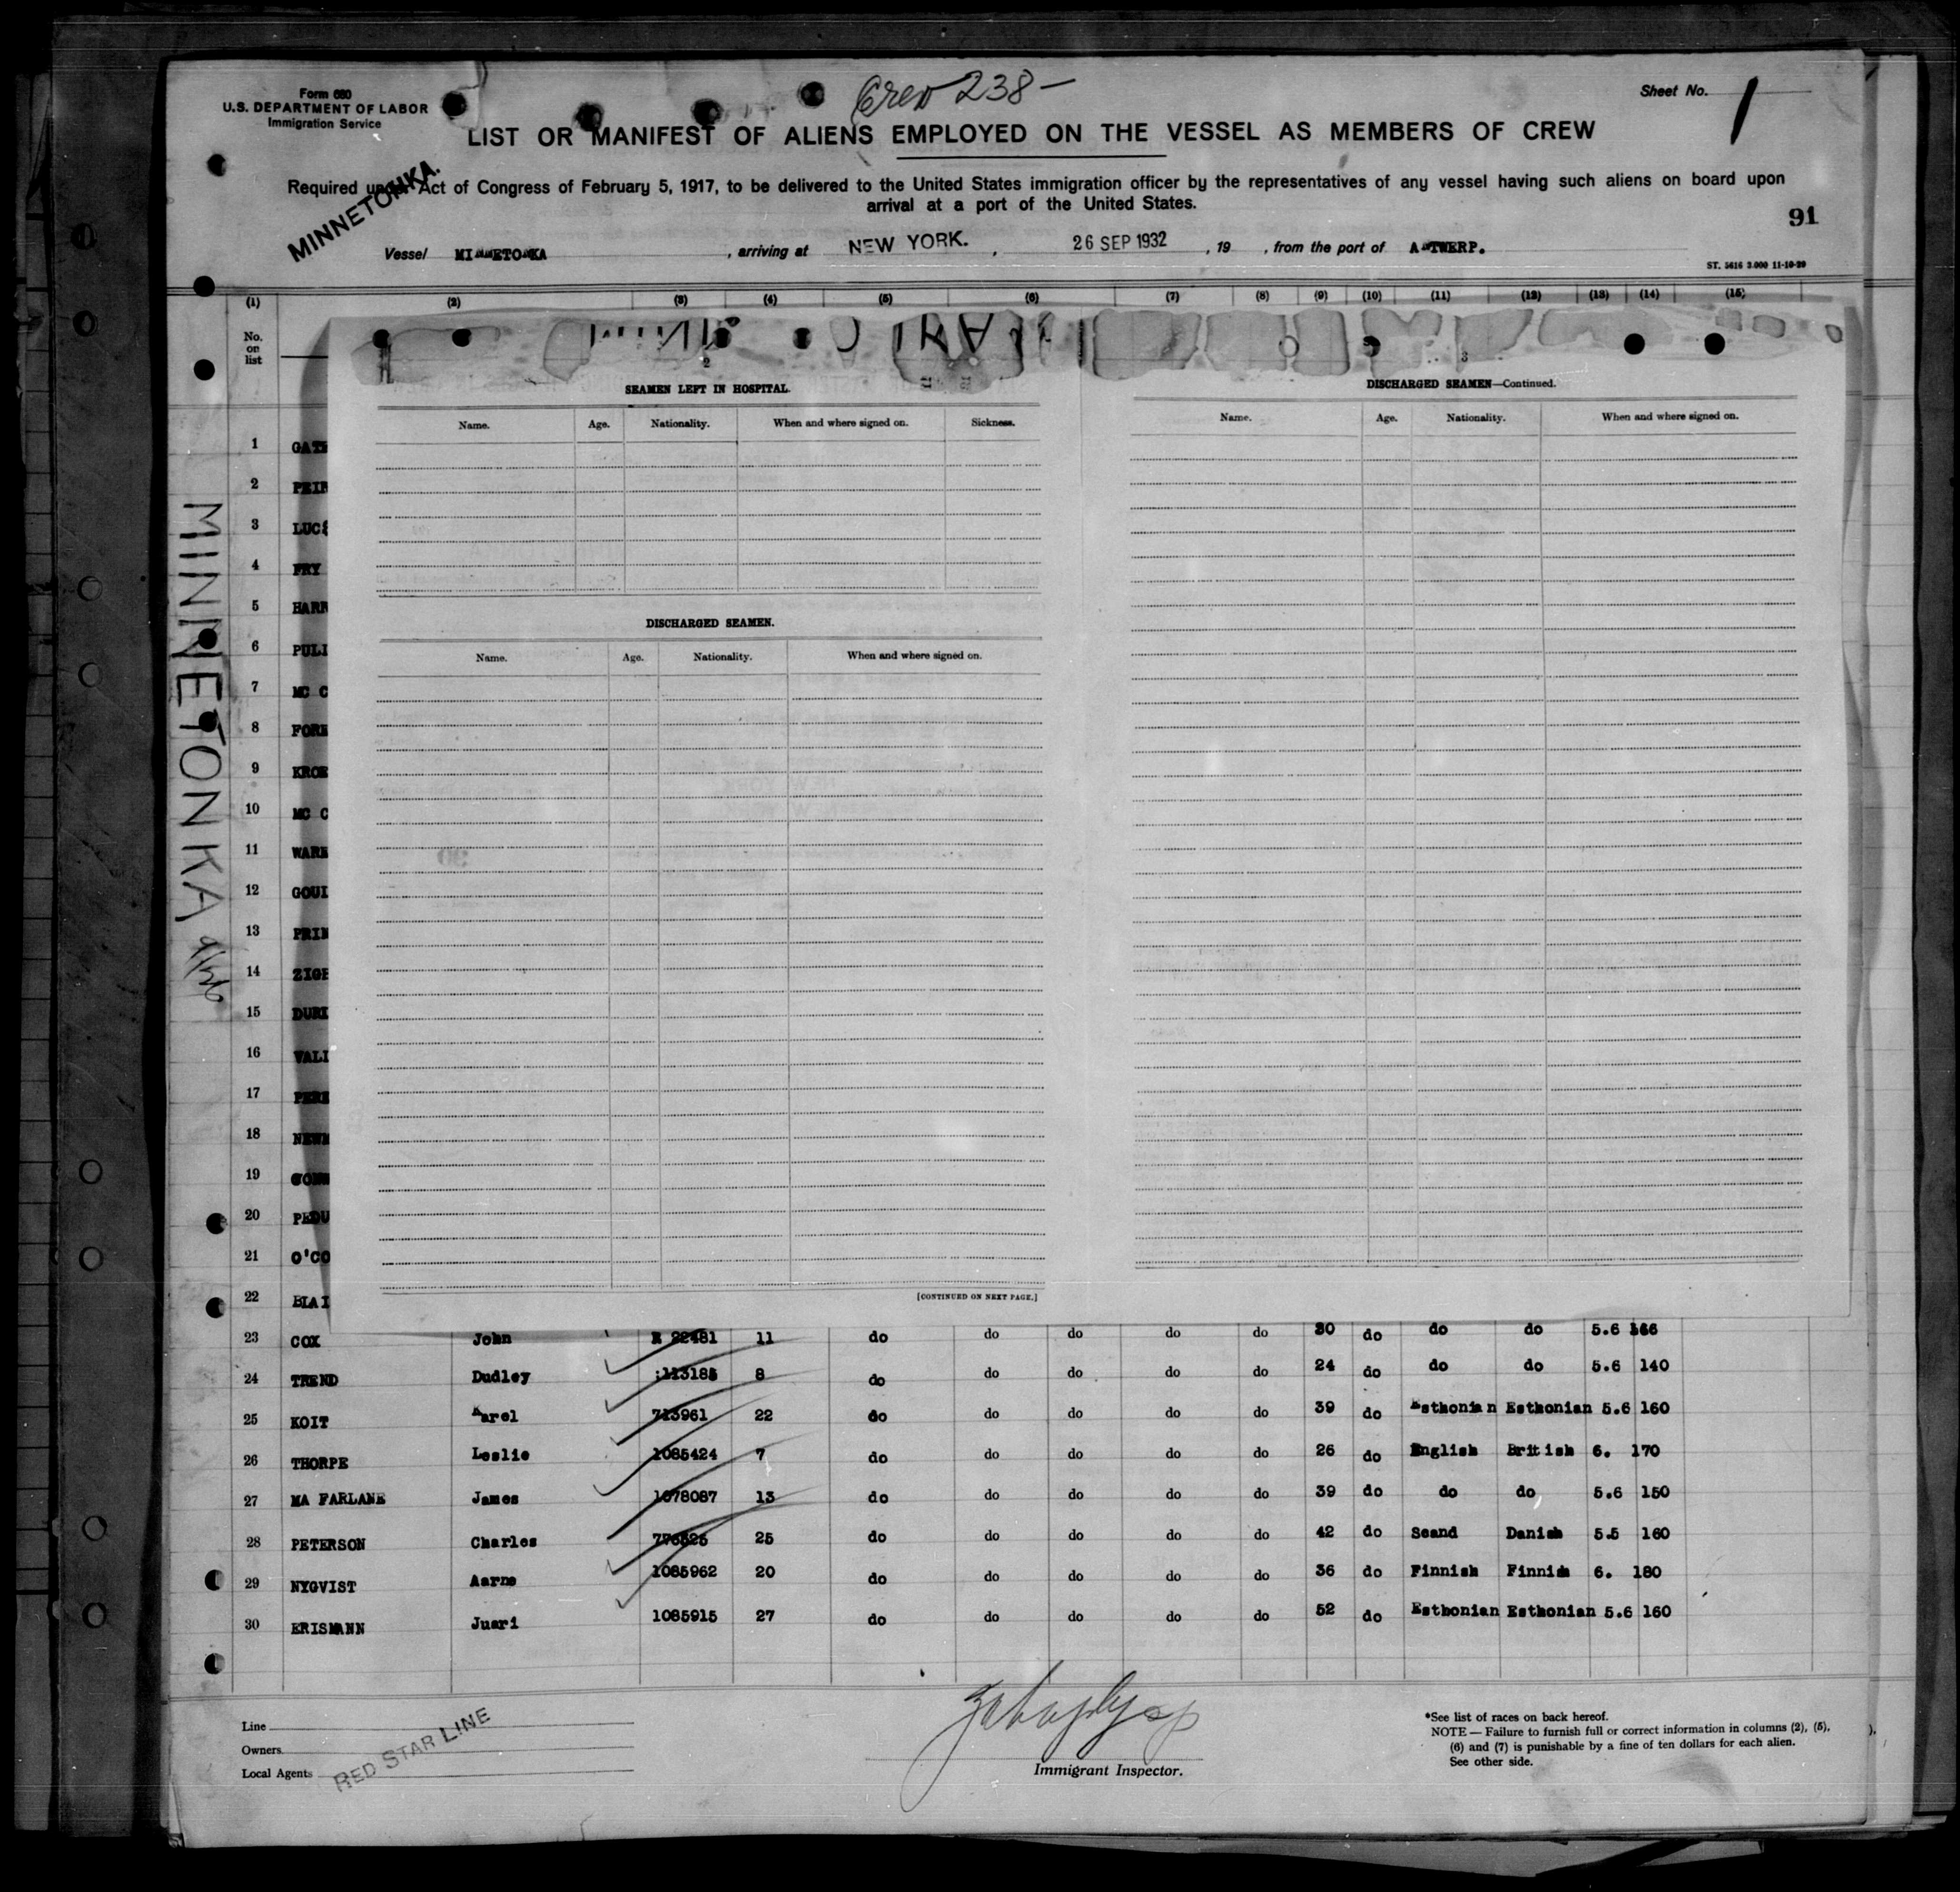 Form 680
U.S. DEPARTMENT OF LABOR
Immigration Service
Crew 238-
Sheet No. 1
LIST OR MANIFEST OF ALIENS EMPLOYED ON THE VESSEL AS MEMBERS OF CREW
MINNETONKA.
Required under Act of Congress of February 5, 1917, to be delivered to the United States immigration officer by the representatives of any vessel having such aliens on board upon
arrival at a port of the United States.
91
Vessel MINNETONKA, arriving at NEW YORK., 26 SEP 1932, 19 , from the port of ANTWERP.
ST. 5616 3.000 11-10-29
(1) (2) (3) (4) (5) (6) (7) (8) (9) (10) (11) (12) (13) (14) (15)
No. on list
2
3
SEAMEN LEFT IN HOSPITAL.
Name. Age. Nationality. When and where signed on. Sickness.
DISCHARGED SEAMEN.
Name. Age. Nationality. When and where signed on.
[CONTINUED ON NEXT PAGE.]
DISCHARGED SEAMEN—Continued.
Name. Age. Nationality. When and where signed on.
MINNETONKA
1 GATE
2 PEIR
3
4 FRY
5 HARR
6 PULI
7 MC C
8 FORE
9 KROE
10 MC C
11 WARE
12 GOUI
13 PRIN
14 ZIGE
15 DURI
16 VALI
17 PERE
18 NEWM
19
20 PEDU
21 O'CO
22 BLAI
23 COX John R 22481 11 do do do do do 30 do do do 5.6 166
24 TREND Dudley 113185 8 do do do do do 24 do do do 5.6 140
25 KOIT Karel 713961 22 do do do do do 39 do Esthonian Esthonian 5.6 160
26 THORPE Leslie 1085424 7 do do do do do 26 do English British 6. 170
27 MA FARLANE James 1078087 13 do do do do do 39 do do do 5.6 150
28 PETERSON Charles 776525 25 do do do do do 42 do Scand Danish 5.5 160
29 NYGVIST Aarne 1085962 20 do do do do do 36 do Finnish Finnish 6. 180
30 ERISMANN Juari 1085915 27 do do do do do 52 do Esthonian Esthonian 5.6 160
Line
Owners
Local Agents
RED STAR LINE
Immigrant Inspector.
*See list of races on back hereof.
NOTE — Failure to furnish full or correct information in columns (2), (5),
(6) and (7) is punishable by a fine of ten dollars for each alien.
See other side.